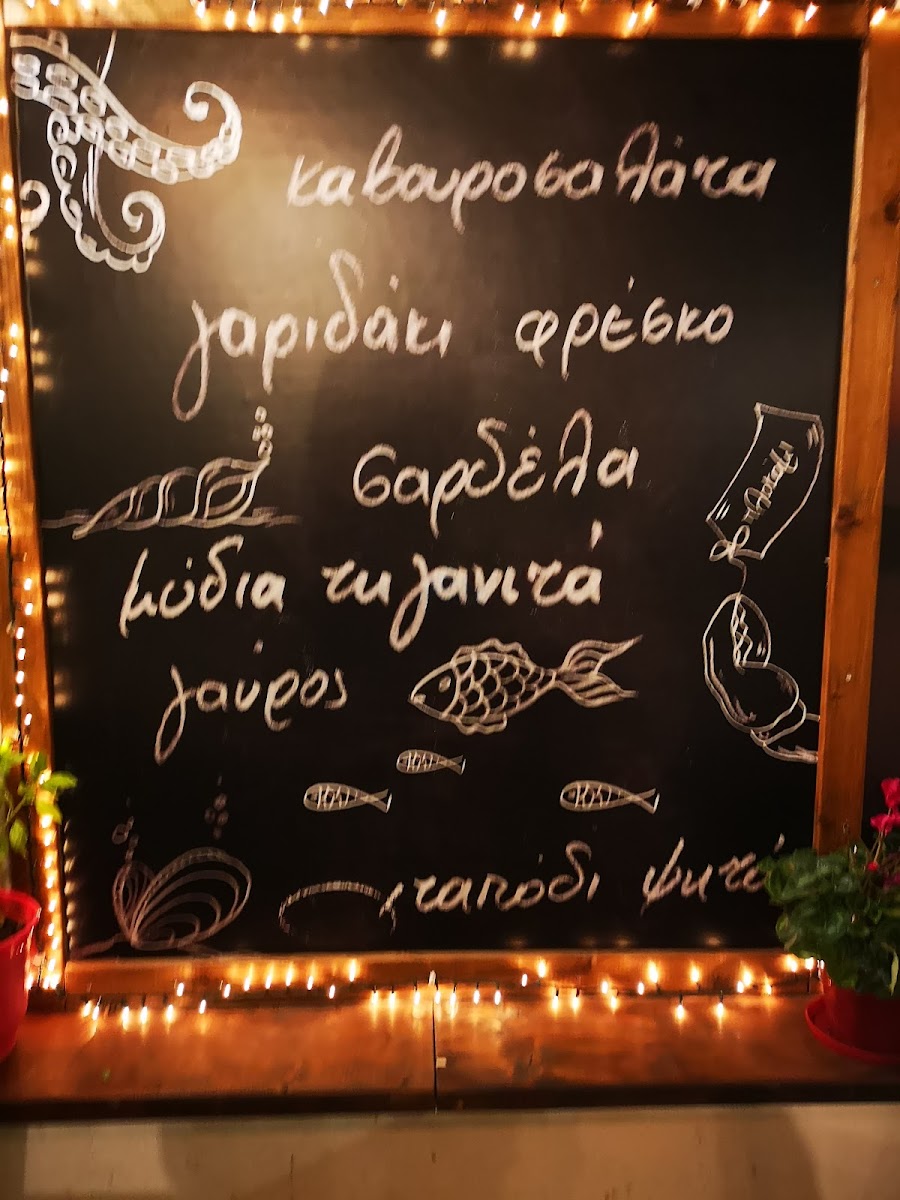 καβουροσαλάτα
γαριδάκι φρέσκο
σαρδέλα
μύδια τηγανιτά
γαύρος
ταπόδι ψητό